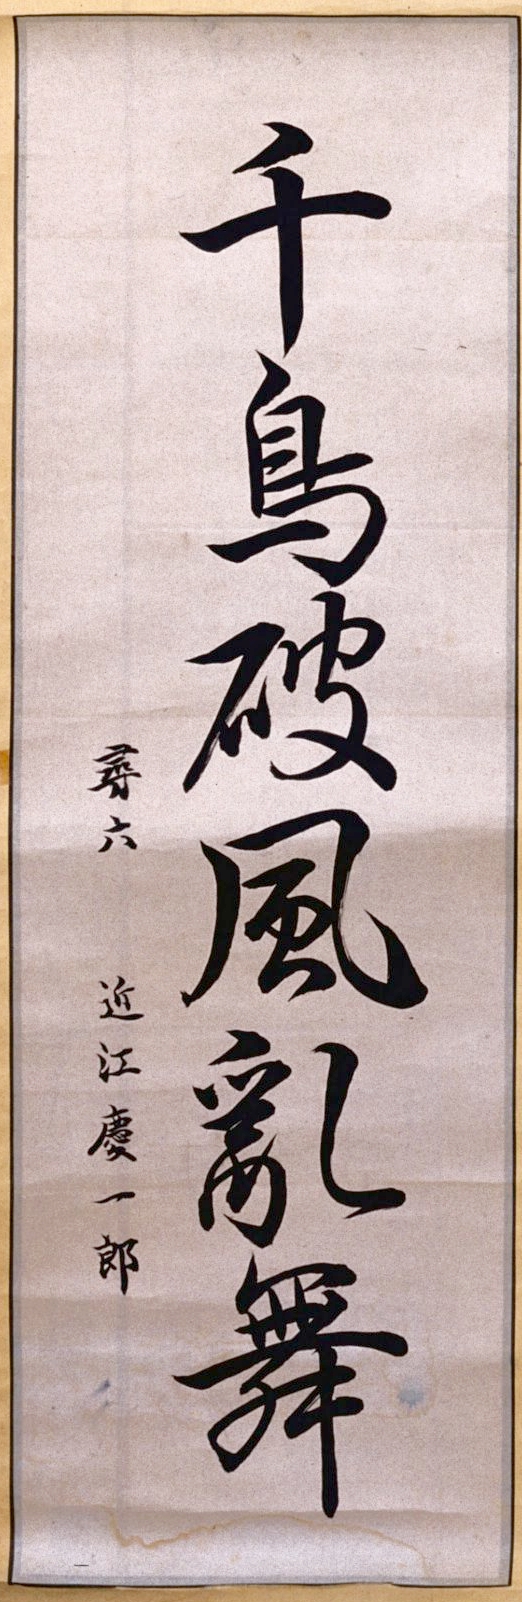 千鳥破風亂舞
尋六 近江慶一郎